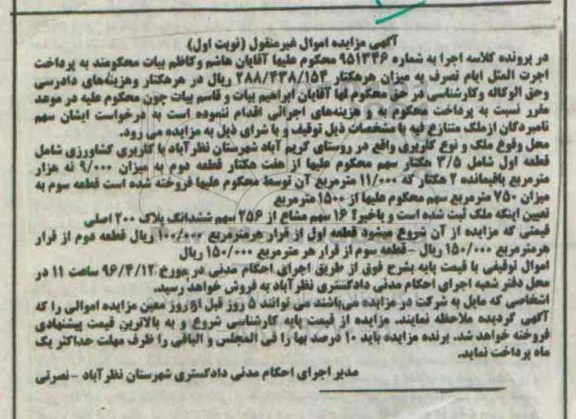 آگهی مزایده اموال غیرمنقول (نوبت اول)
در پرونده کلاسه اجرا به شماره ۹۵۱۳۴۶ محکوم علیها آقایان هاشم وکاظم بیات محکومند به پرداخت
اجرت المثل ایام تصرف به میزان هرهکتار ۲۸۸/۴۳۸/۱۵۴ ریال در هرهکتار وهزینه‌های دادرسی
وحق الوکاله وکارشناسی در حق محکوم لها آقایان ابراهیم بیات و قاسم بیات چون محکوم علیه در موعد
مقرر نسبت به پرداخت محکوم به و هزینه‌های اجرائی اقدام ننموده است به درخواست ایشان سهم
نامبردگان ازملک متنازع فیه با مشخصات ذیل توقیف و با شرای ذیل به مزایده می رود.
محل وقوع ملک و نوع کاربری واقع در روستای کریم آباد شهرستان نظرآباد با کاربری کشاورزی شامل
قطعه اول شامل ۳/۵ هکتار سهم محکوم علیها از هفت هکتار قطعه دوم به میزان ۹/۰۰۰ نه هزار
مترمربع باقیمانده ۲ هکتار که ۱۱/۰۰۰ مترمربع آن توسط محکوم علیها فروخته شده است قطعه سوم به
میزان ۷۵۰ مترمربع سهم محکوم علیها از ۱۵۰۰ مترمربع
تعیین اینکه ملک ثبت شده است و یاخیر؟ ۱۶ سهم مشاع از ۲۵۶ سهم ششدانگ پلاک ۲۰۰ اصلی
قیمتی که مزایده از آن شروع میشود قطعه اول از قرار هرمترمربع ۱۰۰/۰۰۰ ریال قطعه دوم از قرار
هرمترمربع ۱۵۰/۰۰۰ ریال - قطعه سوم از قرار هر مترمربع ۱۵۰/۰۰۰ ریال
اموال توقیفی با قیمت پایه بشرح فوق از طریق اجرای احکام مدنی در مورخ ۹۶/۴/۱۲ ساعت ۱۱ در
محل دفتر شعبه اجرای احکام مدنی دادگستری نظرآباد به فروش خواهد رسید.
اشخاصی که مایل به شرکت در مزایده می‌باشند می توانند ۵ روز قبل از روز معین مزایده اموالی را که
آگهی گردیده ملاحظه نمایند. مزایده از قیمت پایه کارشناسی شروع و به بالاترین قیمت پیشنهادی
فروخته خواهد شد. برنده مزایده باید ۱۰ درصد بها را فی المجلس و الباقی را ظرف مهلت حداکثر یک
ماه پرداخت نماید.
مدیر اجرای احکام مدنی دادگستری شهرستان نظرآباد - نصرتی